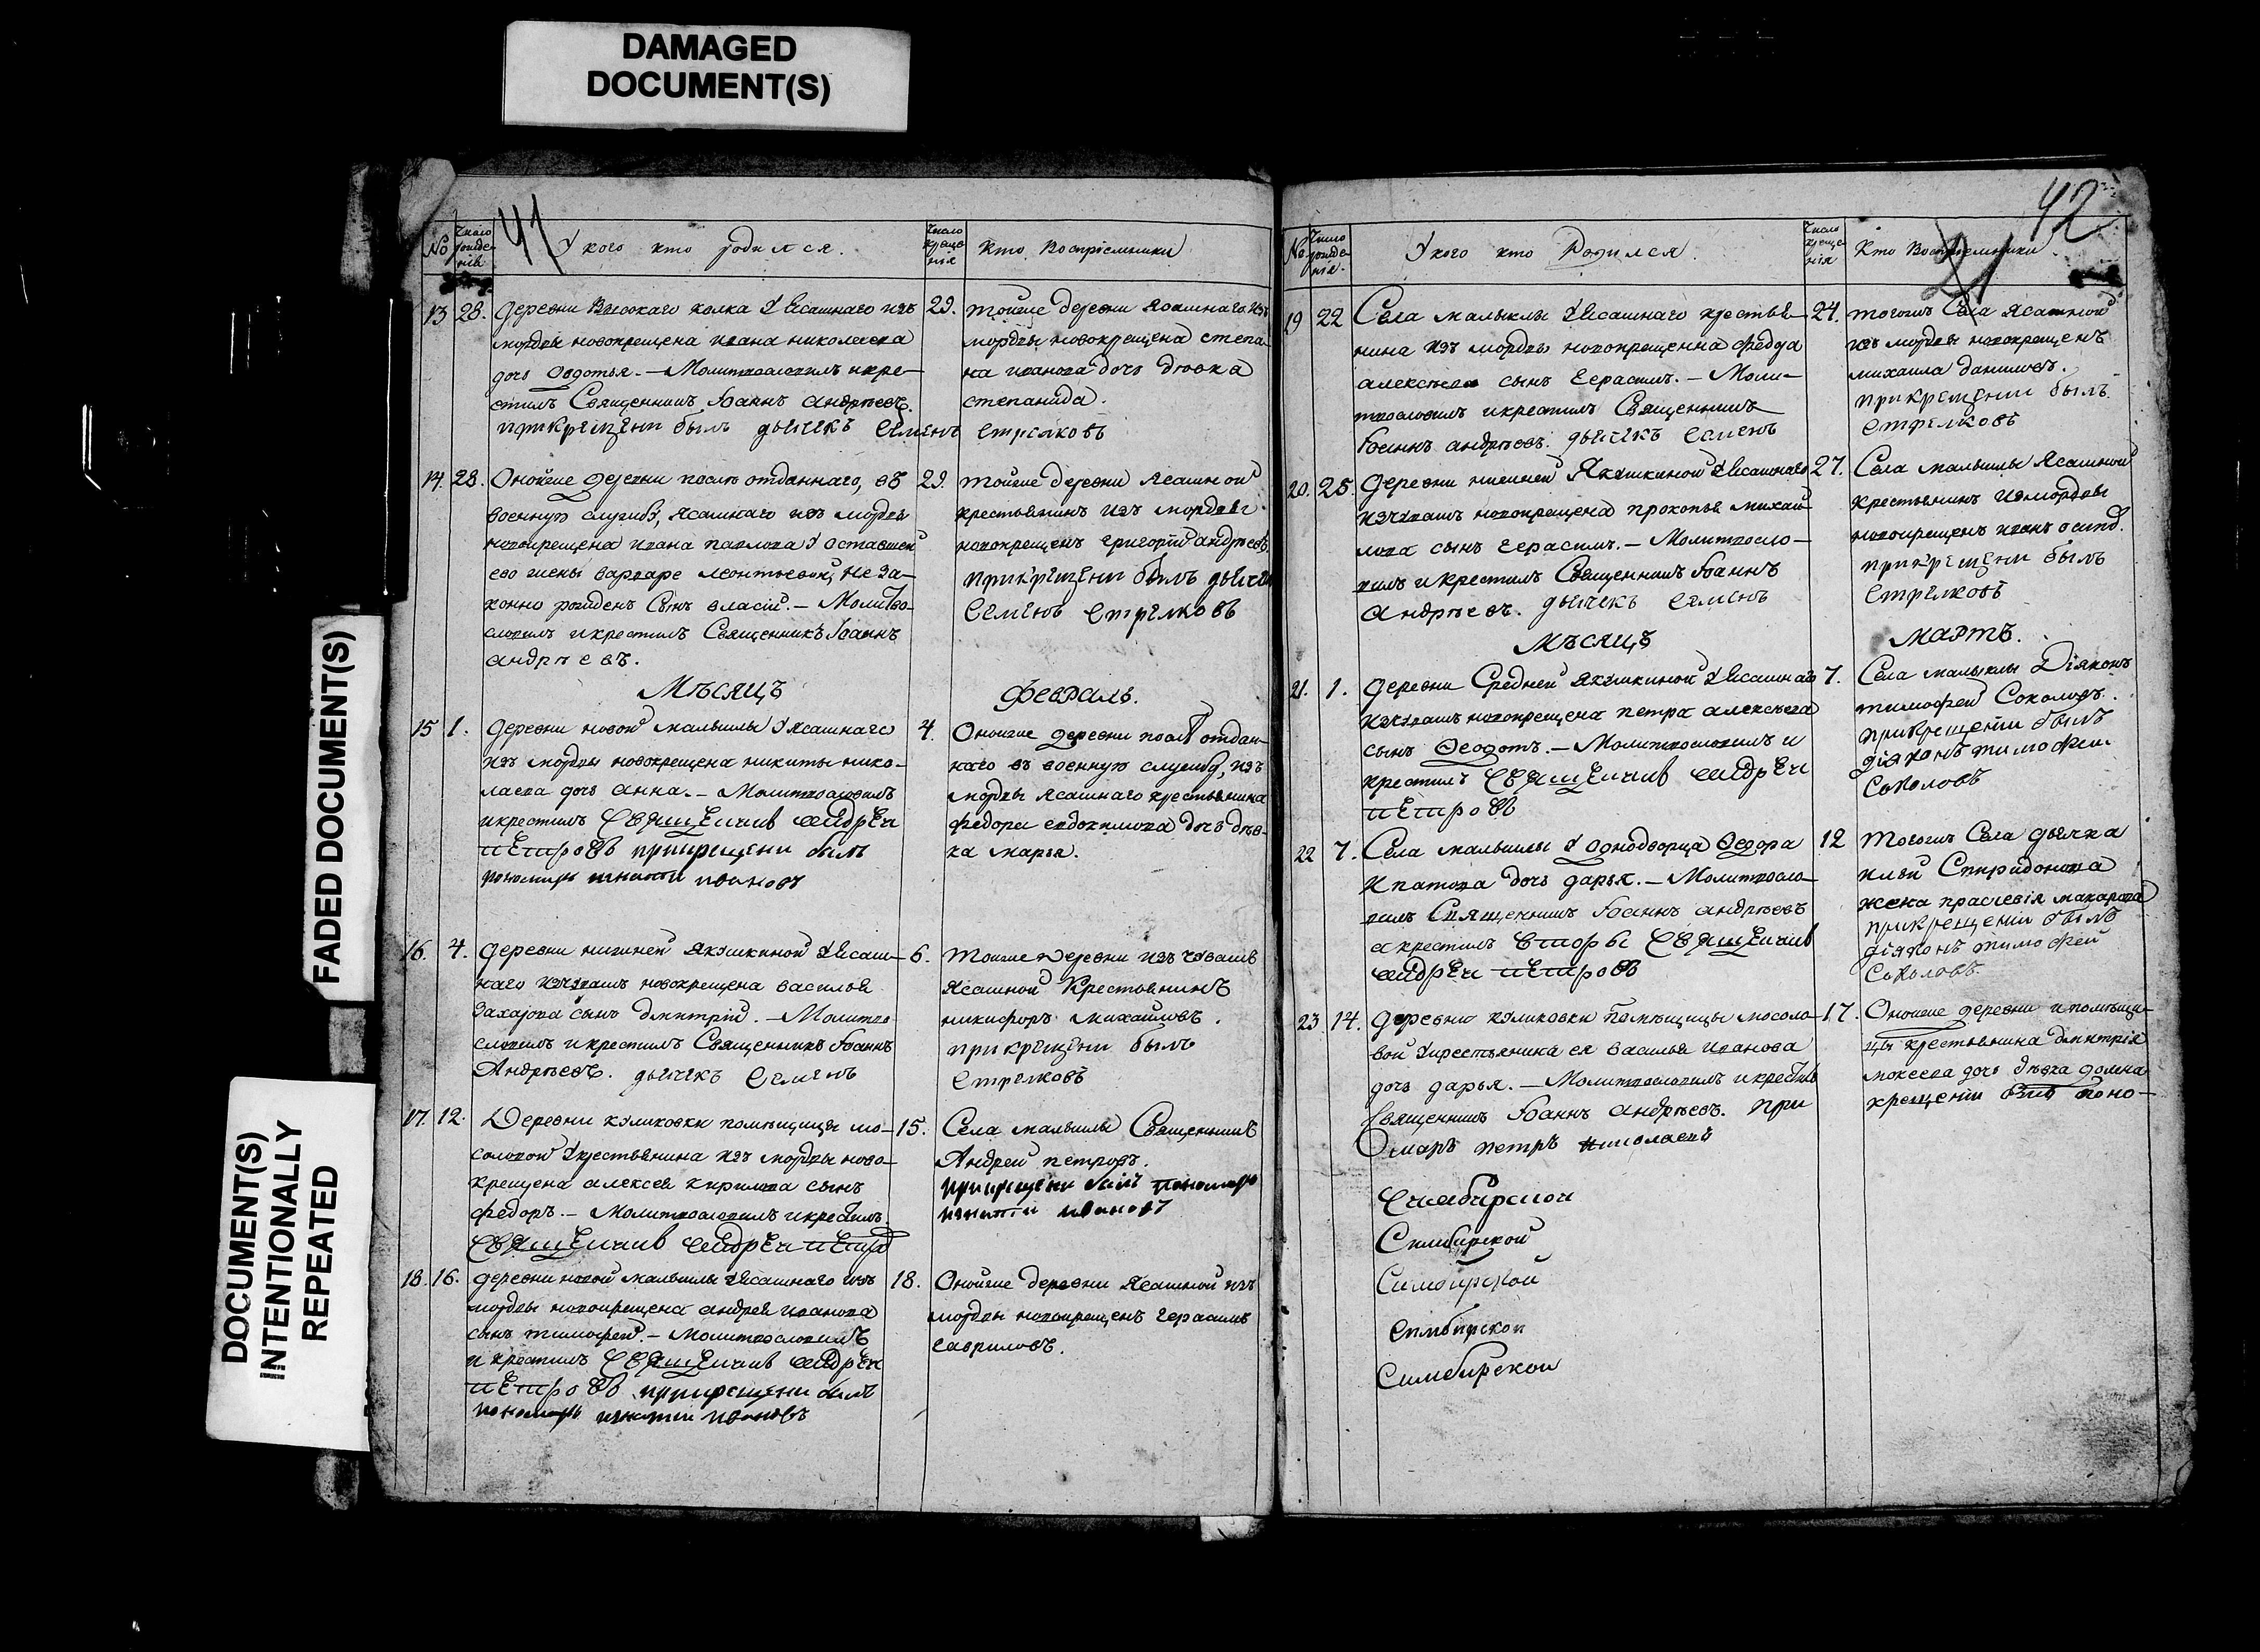 DAMAGED
DOCUMENT(S)
FADED DOCUMENT(S)
DOCUMENT(S)
INTENTIONALLY
REPEATED
41
№
Число рожде-
нія
У кого кто родился.
Число креще-
нія
Кто Воспріемники
13 28. деревни Высокаго колка У Ясашнаго изъ
мордвы новокрещена ивана николаева
дочь Овдотья. — Молитвословилъ и кре-
стилъ Священникъ Іоаннъ андреевъ.
при крещени былъ дьячекъ семенъ стрелковъ
29. тойже деревни Ясашнаго изъ
мордвы новокрещена степа-
на иванова дочь девка
степанида.
14. 28. Онойже деревни послѣ отданнаго, въ
военную службу, ясашнаго изъ мордвы
новокрещена ивана павлова У оставшей
ево жены варваре леонтьевой, не за-
конно рожденъ Сынъ власій. — Молитво-
словилъ и крестилъ Священникъ Іоаннъ
андреевъ.
29. тойже деревни Ясашной
крестьянинъ изъ мордвы
новокрещенъ григорій андреевъ
при крещени былъ дьячек
семенъ стрелковъ
Мѣсяцъ Февраль.
15 1. деревни новой малыклы У ясашнаго
изъ мордвы новокрещена никиты нико-
лаева дочь анна. — Молитвословилъ
и крестилъ священникъ андрей
петровъ при крещени былъ
пономарь игнатей ивановъ
4. Оноиже деревни послѣ отдан-
наго въ военную службу, изъ
мордвы ясашнаго крестьянина
федора евдокимова дочь дѣв-
ка марья.
16. 4. деревни нижней Якушкиной У Ясаш-
наго изчувашъ новокрещена василья
Захарова сынъ дмитрій. — Молитво-
словилъ и крестилъ Священникъ Іоаннъ
Андреевъ. дьячекъ семенъ
6. тоиже деревни изъ чувашъ
Ясашной Крестьянинъ
никифоръ михайловъ.
при крещени былъ
стрелковъ
17. 12. Деревни куликовки помѣщицы мо-
соловой У крестьянина изъ мордвы ново-
крещена алексея кирилова сынъ
федоръ. — Молитвословилъ и крестилъ
священникъ андрей петро
15. Села малыклы Священникъ
Андрей петровъ.
при крещени былъ пономарь
игнатей ивановъ
18. 16. деревни новой малыклы У Ясашнаго изъ
мордвы новокрещена андрея иванова
сынъ тимофей. — Молитвословилъ
и крестилъ священникъ андрей
петровъ при крещени былъ
пономарь игнатей ивановъ
18. Онойже деревни Ясашной изъ
мордвы новокрещенъ герасимъ
гавриловъ.
42
21
№
Число рожде-
нія.
У кого кто Родился.
Число креще-
нія
Кто Воспріемники.
19 22 Села малыклы У Ясашнаго крестья-
нина изъ мордвы новокрещенна федора
алексѣева сынъ герасимъ. — Моли-
твословилъ и крестилъ Священникъ
Іоаннъ андреевъ. дьячекъ семенъ
24. тогожъ Села ясашной
изъ мордвы новокрещенъ
михаила даниловъ.
при крещени былъ
стрелковъ
20. 25. Деревни нижней Якушкиной У Ясашнаго
изчувашъ новокрещена прокопья михай-
лова сынъ герасимъ. — Молитвосло-
вилъ и крестилъ Священникъ Іоаннъ
Андреевъ. дьячекъ семенъ
27. Села малыклы Ясашной
крестьянинъ изъ мордвы
новокрещенъ иванъ осипо.
при крещени былъ
стрелковъ
Мѣсяцъ Мартъ.
21. 1. деревни Средней якушкиной У Ясашнаго
изчувашъ новокрещена петра алексѣева
сынъ Ѳеодотъ. — Молитвословилъ и
крестилъ священникъ андрей
петровъ
7. Села малыклы Діяконъ
тимофей Соколовъ.
при крещеніи былъ
діяконъ тимофеи
Соколовъ
22 7. Села малыклы У однодворца Ѳедора
ипатова дочь дарья. — Молитвосло-
вилъ Священникъ Іоаннъ андреевъ
а крестилъ вторы священникъ
андрей петровъ
12 Тогожъ Села дьячка
ильи Спиридонова
жена прасчевія макарова
при крещеніи былъ
діяконъ тимофей
Соколовъ.
23 14. деревни куликовки помѣщицы мосоло-
вой У крестьянина ея василья иванова
дочь дарья. — Молитвословилъ и крестилъ
священникъ Іоаннъ андреевъ. при
омаръ петръ николаевъ
17. Оноиже деревни и помѣщи-
цы крестьянина дмитрія
мокеева дочь дѣвка домна
крещеніи былъ поно-
Симбирской
Симбирской
Симбирской
Симбирской
Симбирской